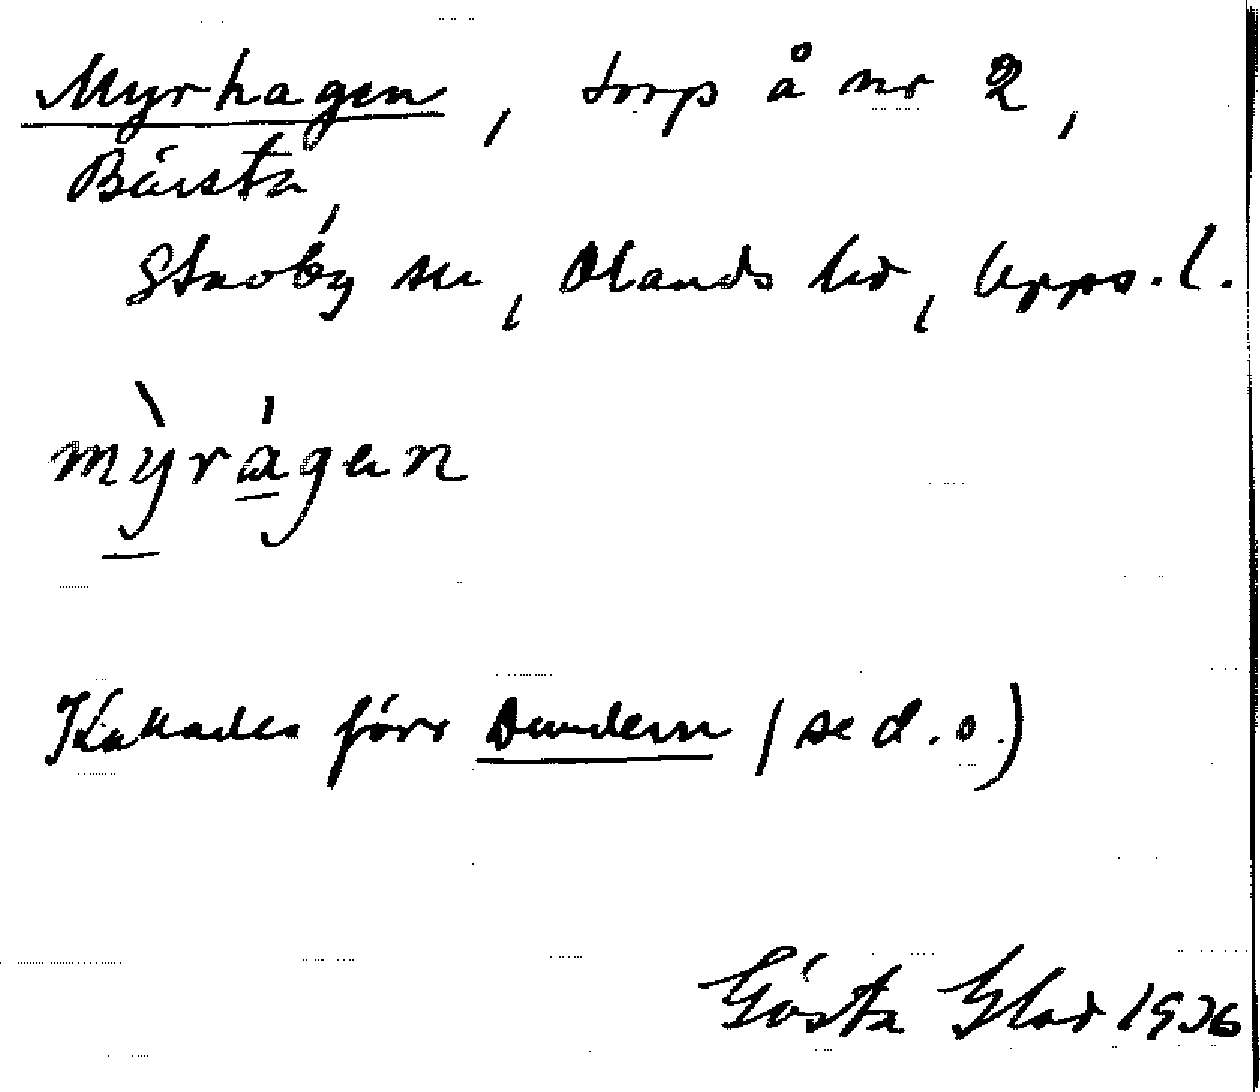 Myrhagen, torp å nr 2,
Bärsta,
Stavby sn, Olands hd, Upps. l.
mỳrágen
Kallades förr Dundern (se d. o.)
Gösta Glad 1936